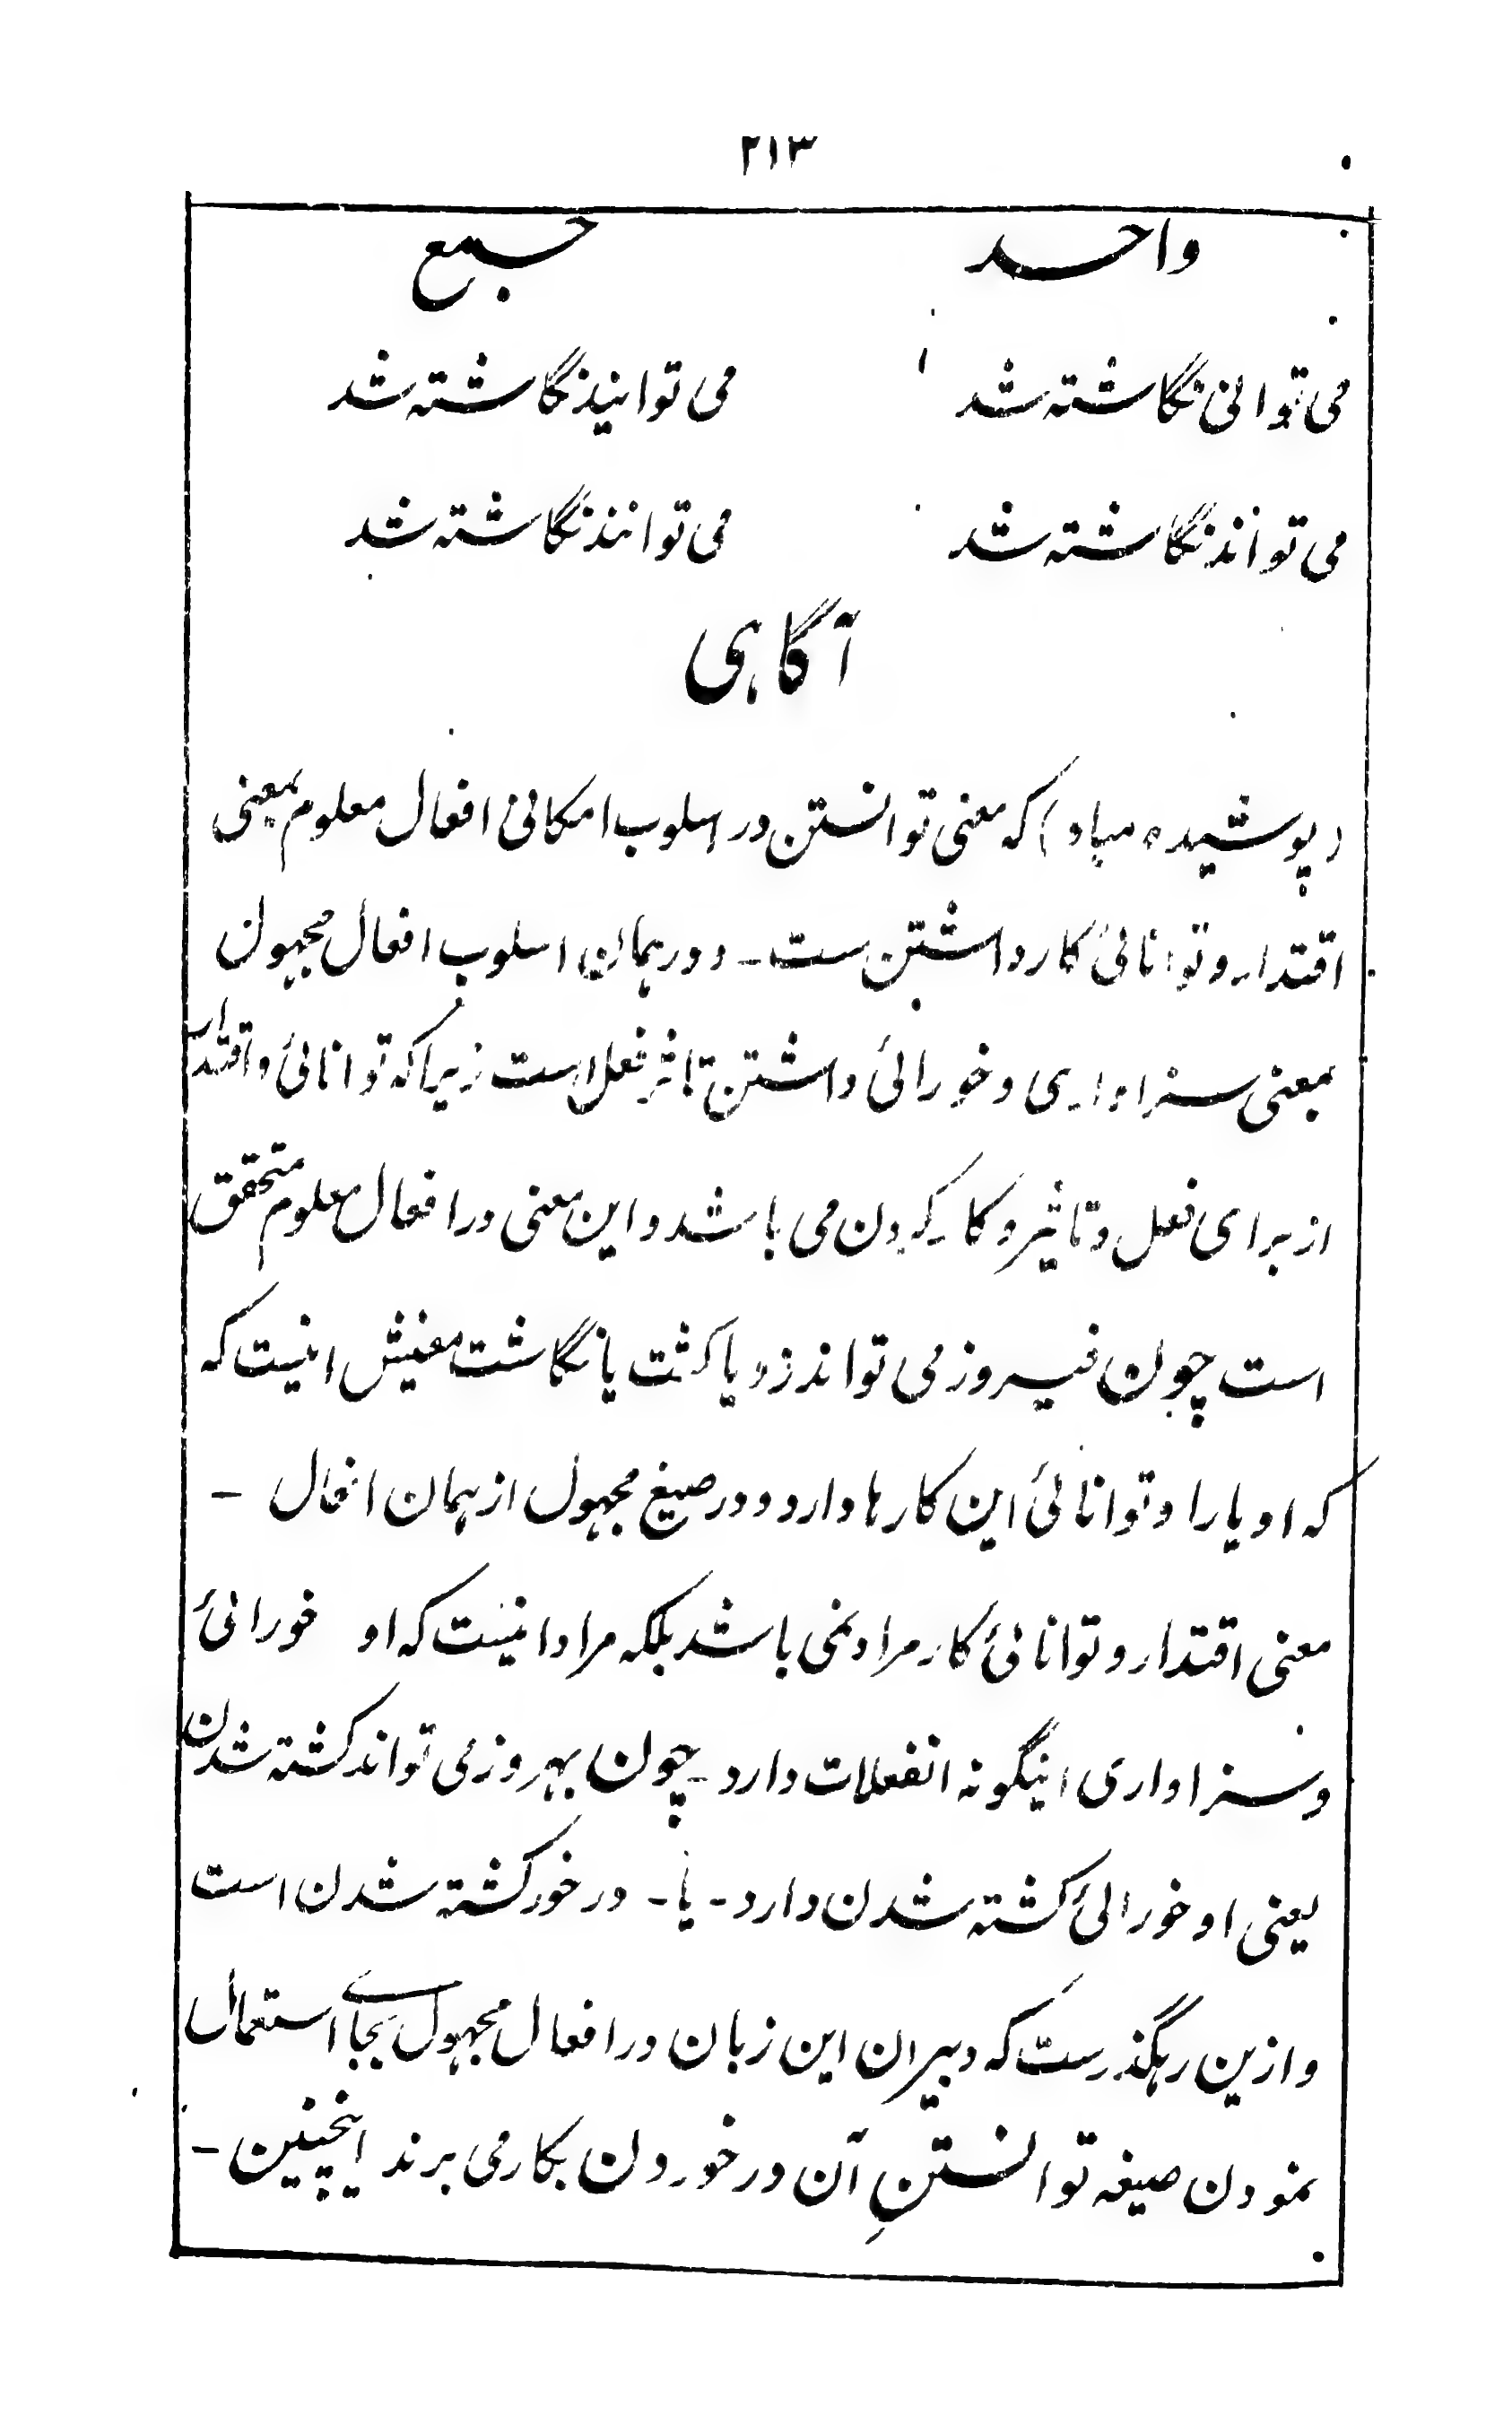 ۲۱۳
واحد جمع
می توانی نگاشته شد می توانید نگاشته شد
می تواند نگاشته شد می توانند نگاشته شد
آگاهی
(پوشیده مباد) که معنی توانستن در اسلوب امکانی افعال معلوم بمعنی
اقتدار و توانائی کار داشتن ست - و در همان اسلوب افعال مجهول
بمعنی سزاواری و خورائی داشتن تاثر فعل است زیرا که توانائی و اقتدار
از برای فعل و تاثیر و کار کردن می باشد و این معنی در افعال معلوم متحقق
است چون فیروز می تواند زد یا کشت یا نگاشت معنیش اینست که
که او یارا و توانائی این کارها دارد و در صیغ مجهول از همان افعال -
معنی اقتدار و توانائی کار مراد نمی باشد بلکه مراد اینست که او خورائی
و سزاواری اینگونه انفعلات دارد - چون بهروز می تواند کشته شدن
یعنی او خورائی کشته شدن دارد - یا - در خور کشته شدن است
و ازین رهگذرست که دبیران این زبان در افعال مجهول بجاے استعمال
نمودن صیغه توانستنِ آن در خوردن بکار می برند اینچنین -